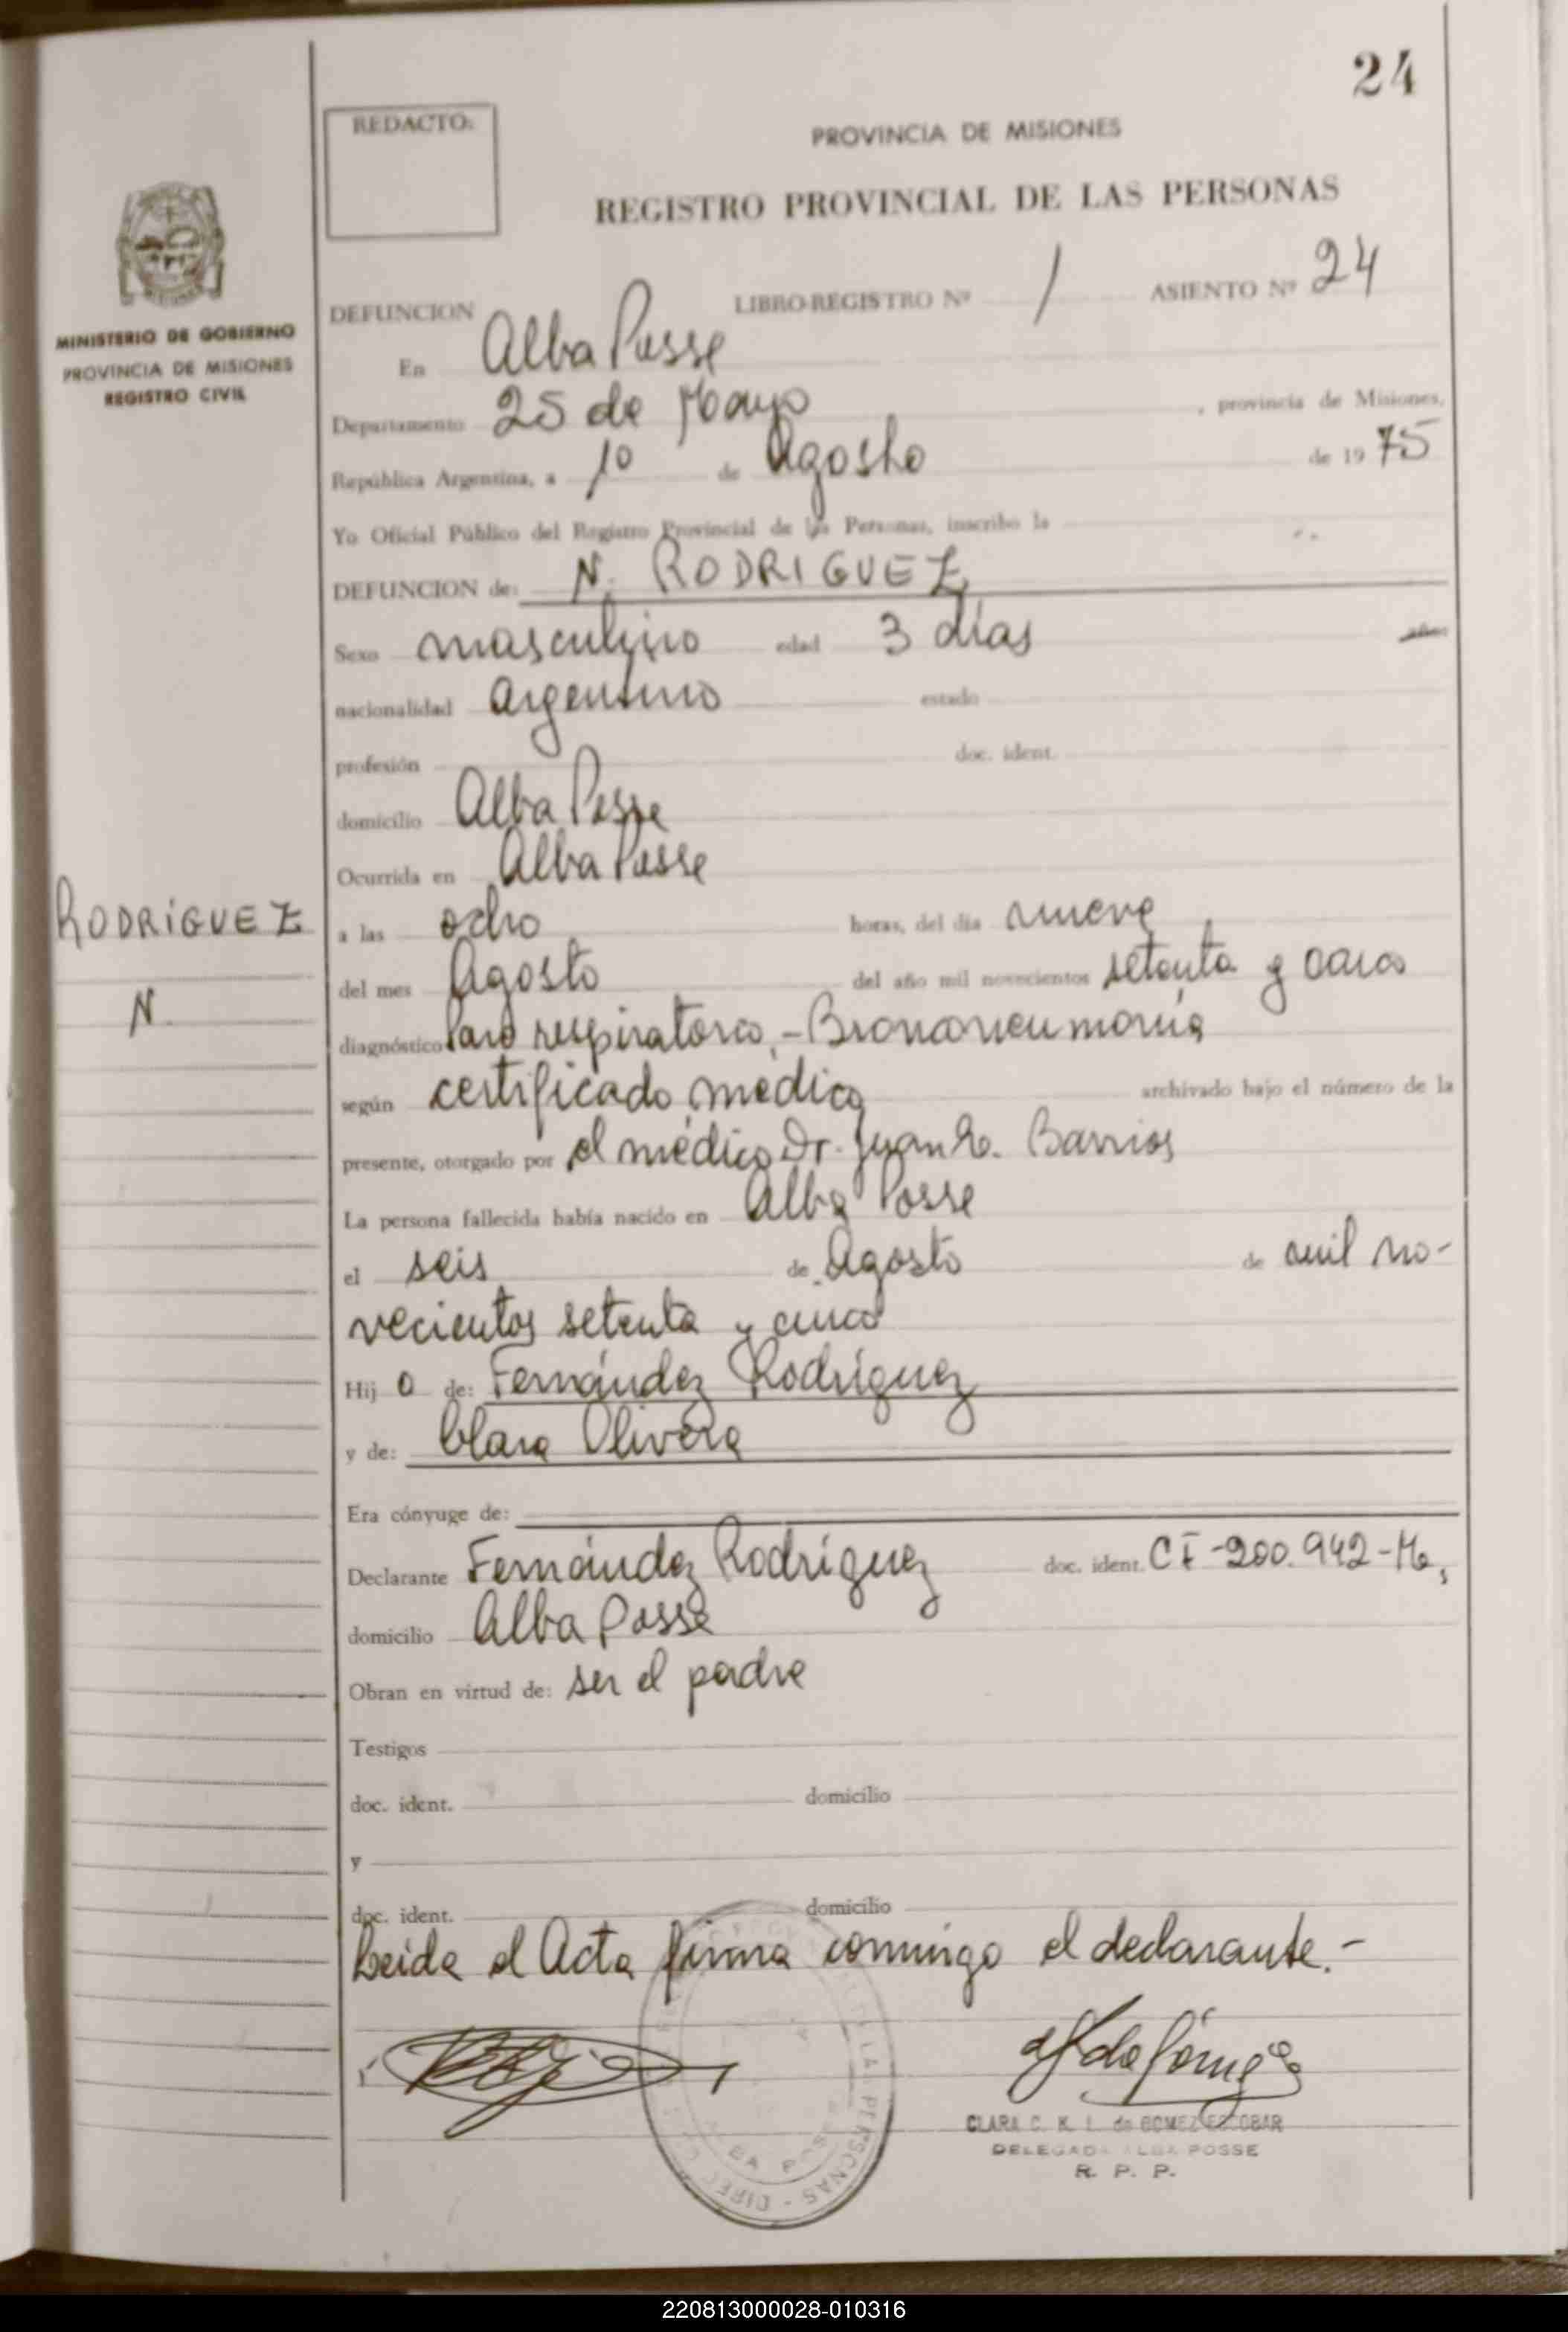 24
REDACTO:
PROVINCIA DE MISIONES
REGISTRO PROVINCIAL DE LAS PERSONAS
MINISTERIO DE GOBIERNO
PROVINCIA DE MISIONES
REGISTRO CIVIL
DEFUNCION LIBRO-REGISTRO Nº 1 ASIENTO Nº 24
En Alba Posse
Departamento 25 de Mayo , provincia de Misiones,
República Argentina, a 10 de Agosto de 19 75
Yo Oficial Público del Registro Provincial de las Personas, inscribo la
DEFUNCION de: N. RODRIGUEZ
Sexo masculino edad 3 días
nacionalidad argentino estado
profesión doc. ident.
domicilio Alba Posse
Ocurrida en Alba Posse
RODRÍGUEZ
N.
a las ocho horas, del día nueve
del mes Agosto del año mil novecientos setenta y cinco
diagnóstico Paro respiratorio,-Bronconeumonía
según certificado médico archivado bajo el número de la
presente, otorgado por el médico Dr. Juan R. Barrios
La persona fallecida había nacido en Alba Posse
el seis de Agosto de mil no-
vecientos setenta y cinco
Hij o de: Fernández Rodríguez
y de: Clara Olivera
Era cónyuge de:
Declarante Fernández Rodríguez doc. ident. CI-200.942-Ms,
domicilio Alba Posse
Obran en virtud de: ser el padre
Testigos
doc. ident. domicilio
y
doc. ident. domicilio
Leída el Acta firma conmigo el declarante.-
CLARA C. K. L. de GOMEZ ESCOBAR
DELEGADA ALBA POSSE
R. P. P.
220813000028-010316